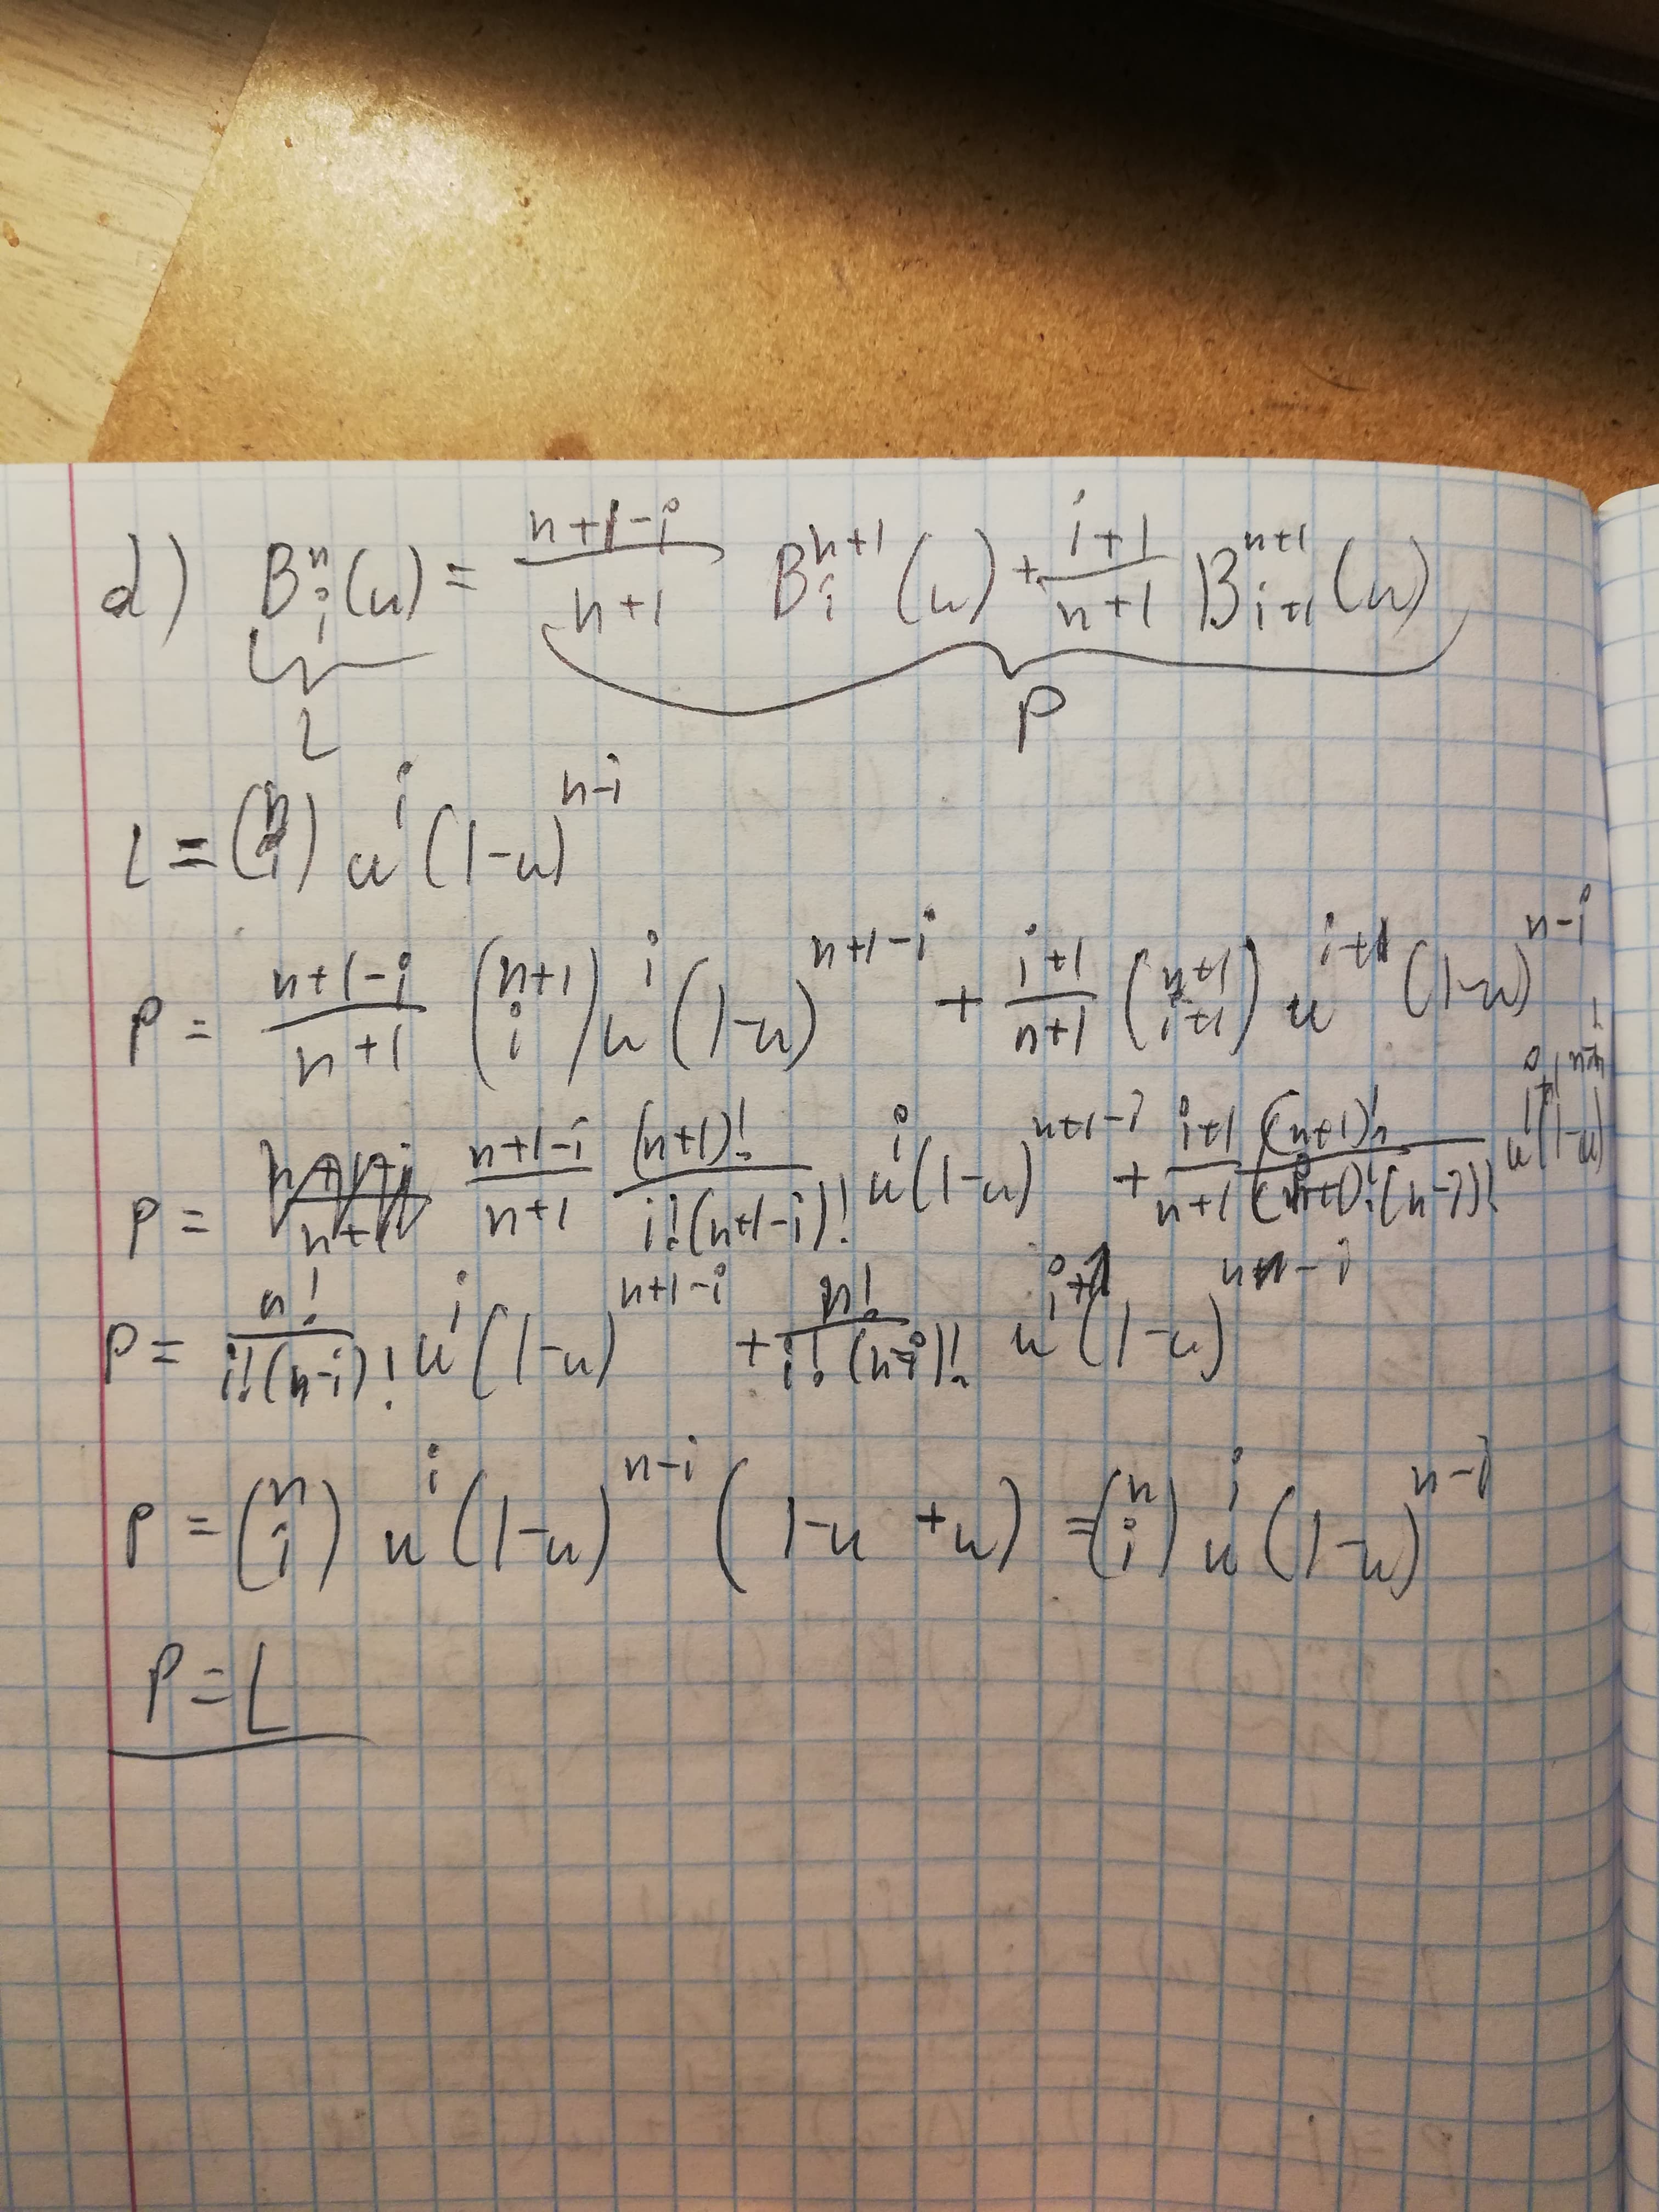 d) B_i^n(u) = \frac{n+1-i}{n+1} B_i^{n+1}(u) + \frac{i+1}{n+1} B_{i+1}^{n+1}(u)
L P
L = \binom{n}{i} u^i (1-u)^{n-i}
P = \frac{n+1-i}{n+1} \binom{n+1}{i} u^i (1-u)^{n+1-i} + \frac{i+1}{n+1} \binom{n+1}{i+1} u^{i+1} (1-u)^{n-i}
P = \frac{n+1-i}{n+1} \frac{(n+1)!}{i!(n+1-i)!} u^i (1-u)^{n+1-i} + \frac{i+1}{n+1} \frac{(n+1)!}{(i+1)!(n-i)!} u^{i+1} (1-u)^{n-i}
P = \frac{n!}{i!(n-i)!} u^i (1-u)^{n+1-i} + \frac{n!}{i!(n-i)!} u^{i+1} (1-u)^{n-i}
P = \binom{n}{i} u^i (1-u)^{n-i} (1-u+u) = \binom{n}{i} u^i (1-u)^{n-i}
P = L